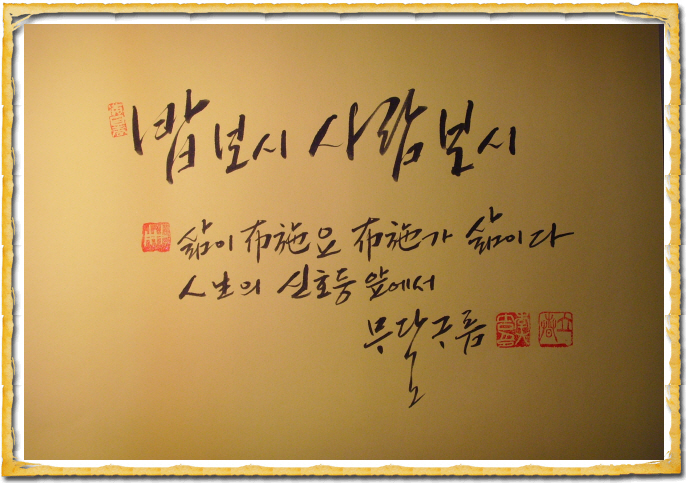 밥보시 사람보시
삶이 布施요 布施가 삶이다
人生의 신호등 앞에서
구름